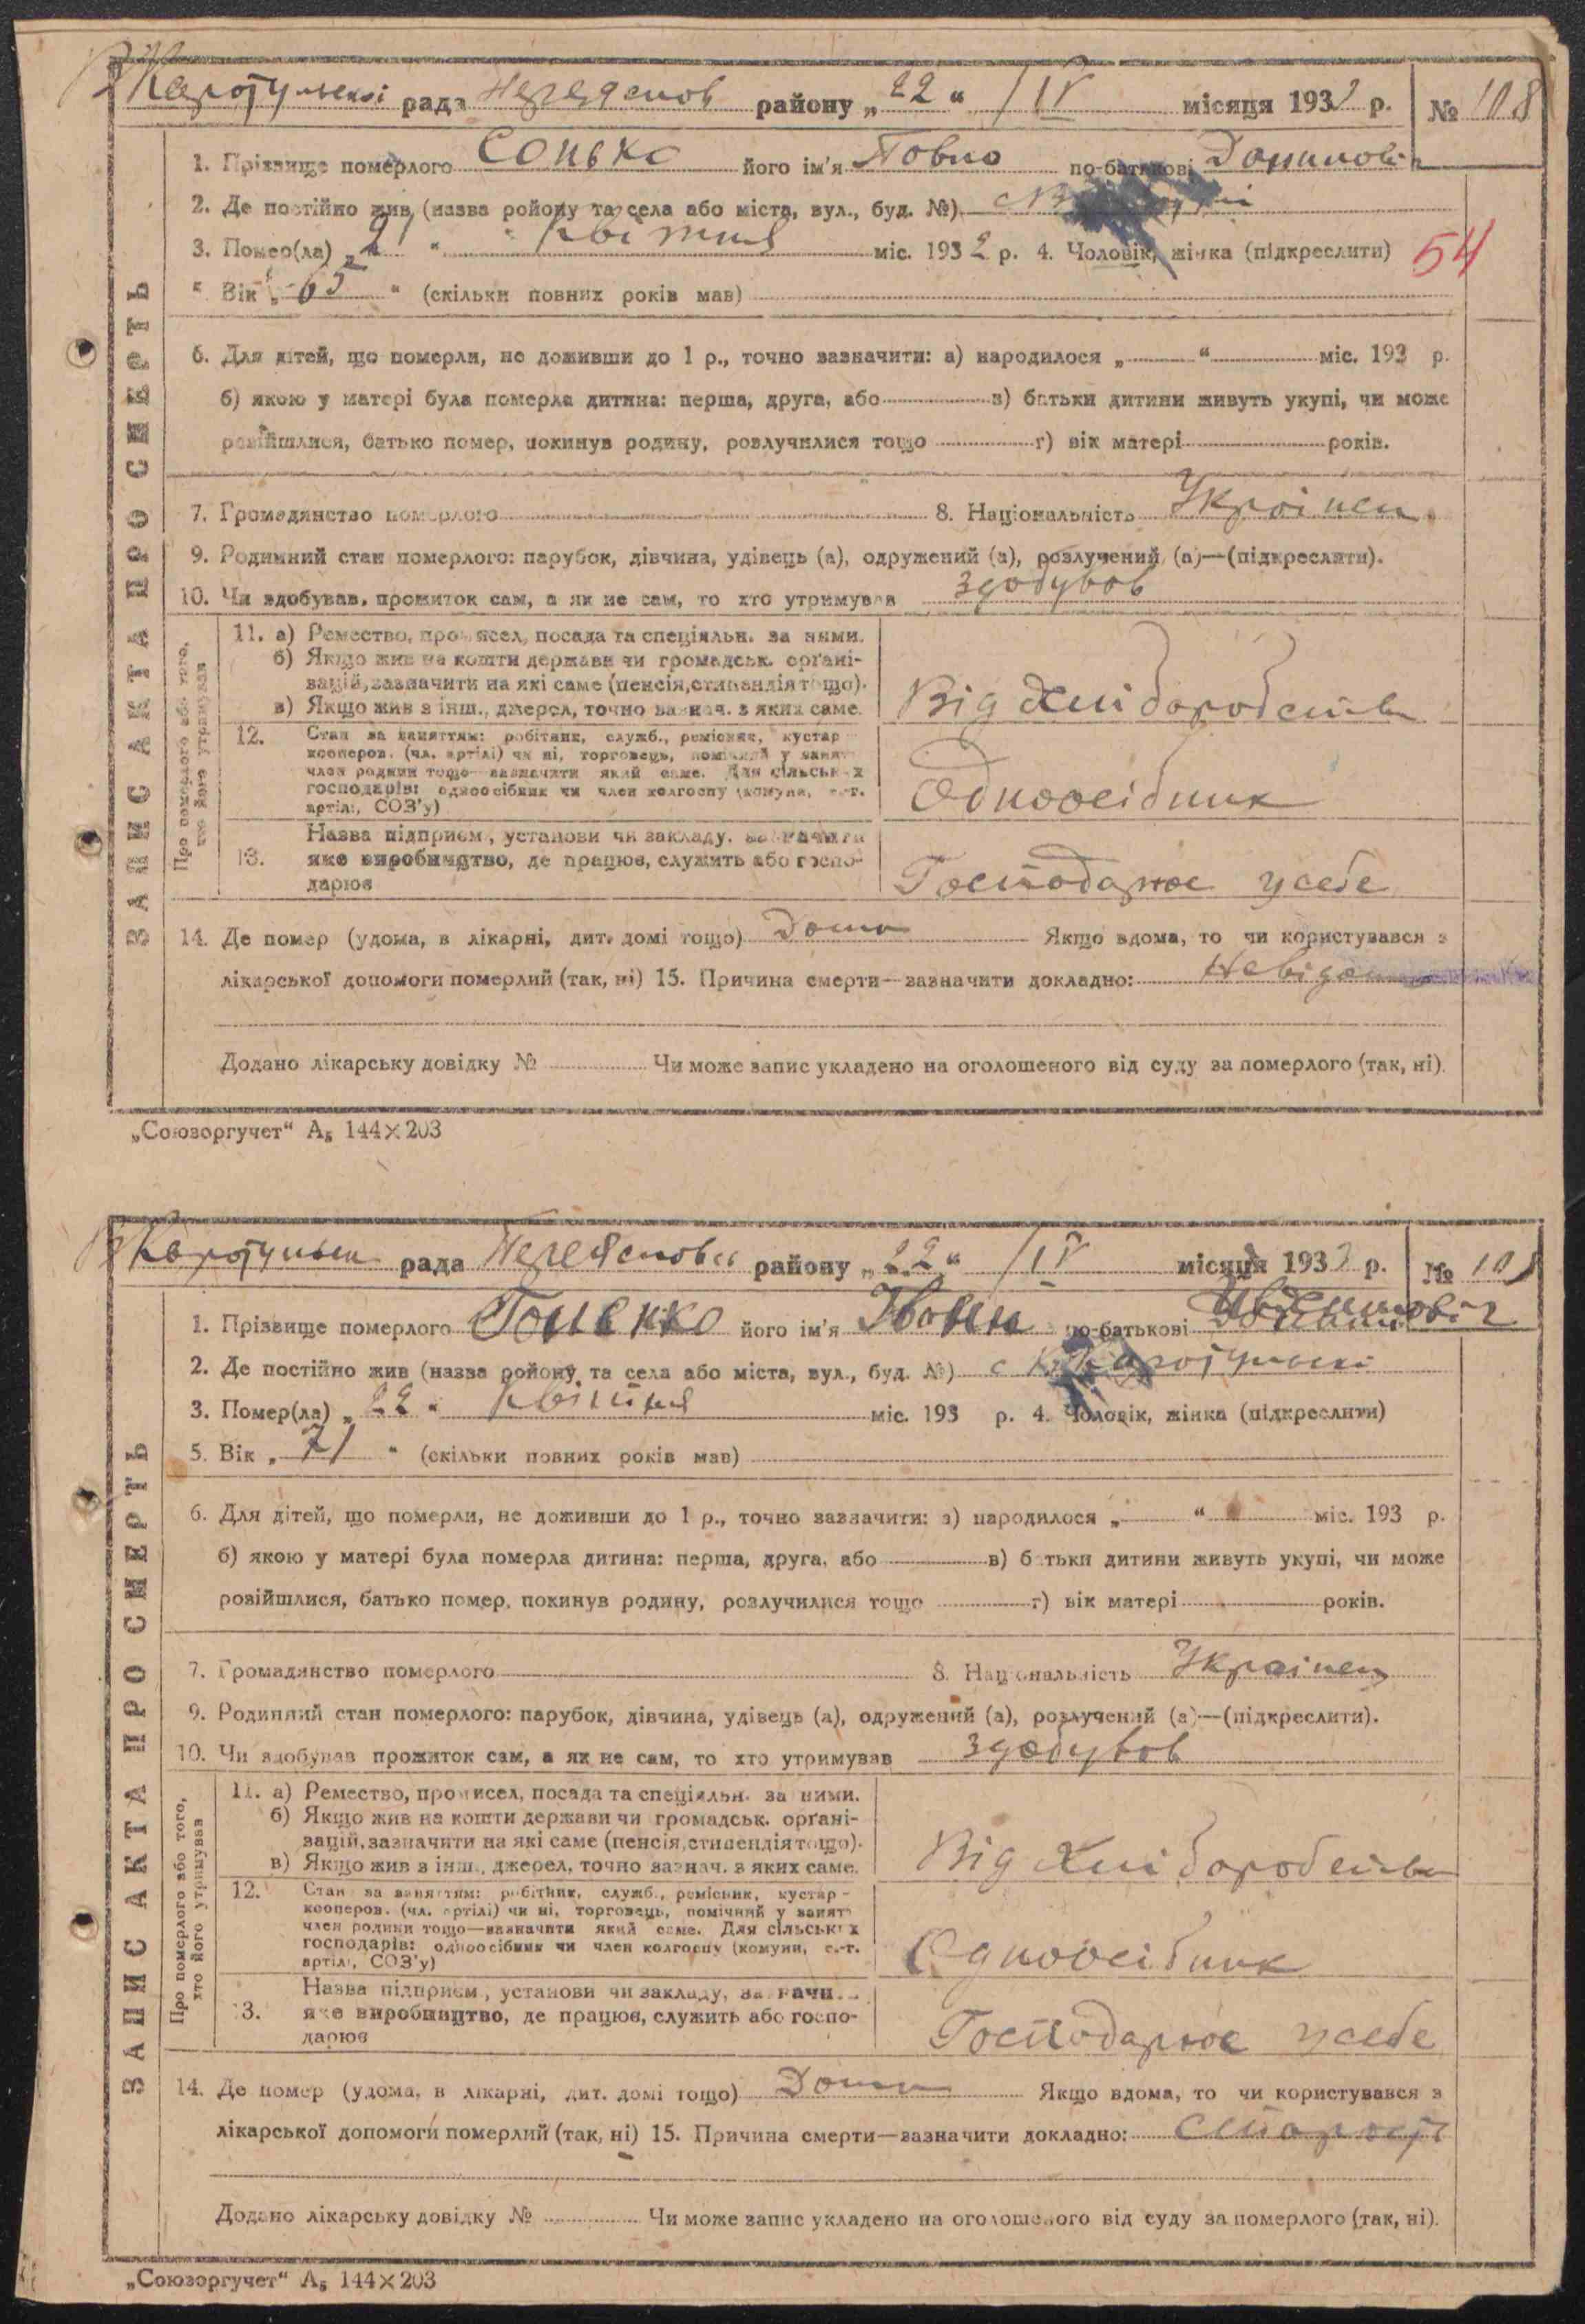 рада Переяслов району „22“ /IV місяця 193 р. № 108
1. Прізвище померлого Сонько його ім'я Павло по-батькові
2. Де постійно жив (назва ройону та села або міста, вул., буд. №)
3. Помер(ла) „21“ квітня міс. 1932 р. 4. Чоловік, жінка (підкреслити) 54
5. Вік „65“ (скільки повних років мав)
6. Для дітей, що померли, не доживши до 1 р., точно зазначити: а) народилося „ “ міс. 193 р.
б) якою у матері була померла дитина: перша, друга, або в) батьки дитини живуть укупі, чи може
розійшлися, батько помер, покинув родину, розлучилися тощо г) вік матері років.
7. Громадянство померлого 8. Національність Украінец
9. Родинний стан померлого: парубок, дівчина, удівець (а), одружений (а), розлучений (а)—(підкреслити).
10. Чи здобував прожиток сам, а як не сам, то хто утримував здобував
ЗАПИС АКТА ПРО СМЕРТЬ
Про померлого або того,
хто його утримував
11. а) Ремество, промисел, посада та спеціяльн. за ними.
б) Якщо жив на кошти держави чи громадськ. орґані-
зацій, зазначити на які саме (пенсія, стипендія тощо).
в) Якщо жив з інш., джерел, точно зазнач. з яких саме.
Від хліборобства
12. Стан за заняттям: робітник, служб., ремісник, кустар -
кооперов. (чл. артілі) чи ні, торговець, помічний у занят.
член родини тощо—зазначити який саме. Для сільських
господарів: одноосібник чи член колгоспу (комуни, с.-г.
артілі, СОЗ'у)
Одноосібник
13. Назва підприєм., установи чи закладу, зазначити
яке виробництво, де працює, служить або госпо-
дарює
Господарює у себе
14. Де помер (удома, в лікарні, дит. домі тощо) Дома Якщо вдома, то чи користувався з
лікарської допомоги померлий (так, ні) 15. Причина смерти—зазначити докладно:
Додано лікарську довідку № Чи може запис укладено на оголошеного від суду за померлого (так, ні).
„Союзоргучет“ А₅ 144×203
рада району „22“ /IV місяця 193 р. №
1. Прізвище померлого його ім'я Іван по-батькові
2. Де постійно жив (назва ройону та села або міста, вул., буд. №) с
3. Помер(ла) „22“ квітня міс. 193 р. 4. Чоловік, жінка (підкреслити)
5. Вік „71“ (скільки повних років мав)
6. Для дітей, що померли, не доживши до 1 р., точно зазначити: а) народилося „ “ міс. 193 р.
б) якою у матері була померла дитина: перша, друга, або в) батьки дитини живуть укупі, чи може
розійшлися, батько помер, покинув родину, розлучилися тощо г) вік матері років.
7. Громадянство померлого 8. Національність Украінец
9. Родинний стан померлого: парубок, дівчина, удівець (а), одружений (а), розлучений (а)—(підкреслити).
10. Чи здобував прожиток сам, а як не сам, то хто утримував здобував
ЗАПИС АКТА ПРО СМЕРТЬ
Про померлого або того,
хто його утримував
11. а) Ремество, промисел, посада та спеціяльн. за ними.
б) Якщо жив на кошти держави чи громадськ. орґані-
зацій, зазначити на які саме (пенсія, стипендія тощо).
в) Якщо жив з інш., джерел, точно зазнач. з яких саме.
Від хліборобства
12. Стан за заняттям: робітник, служб., ремісник, кустар -
кооперов. (чл. артілі) чи ні, торговець, помічний у занят.
член родини тощо—зазначити який саме. Для сільських
господарів: одноосібник чи член колгоспу (комуни, с.-г.
артілі, СОЗ'у)
Одноосібник
13. Назва підприєм., установи чи закладу, зазначити
яке виробництво, де працює, служить або госпо-
дарює
Господарює у себе
14. Де помер (удома, в лікарні, дит. домі тощо) Дома Якщо вдома, то чи користувався з
лікарської допомоги померлий (так, ні) 15. Причина смерти—зазначити докладно: Старость
Додано лікарську довідку № Чи може запис укладено на оголошеного від суду за померлого (так, ні).
„Союзоргучет“ А₅ 144×203